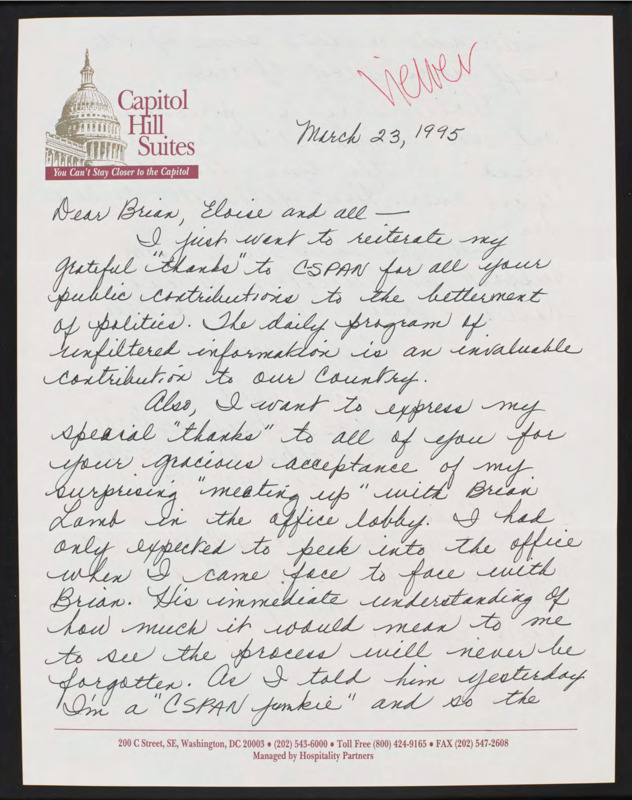 Viewer
Capitol
Hill
Suites
You Can't Stay Closer to the Capitol
March 23, 1995
Dear Brian, Eloise and all —
I just want to reiterate my
grateful "thanks" to CSPAN for all your
public contributions to the betterment
of politics. The daily program of
unfiltered information is an invaluable
contribution to our Country.
Also, I want to express my
special "thanks" to all of you for
your gracious acceptance of my
surprising "meeting up" with Brian
Lamb in the office lobby. I had
only expected to peek into the office
when I came face to face with
Brian. His immediate understanding of
how much it would mean to me
to see the process will never be
forgotten. As I told him yesterday
I'm a "CSPAN junkie" and so the
200 C Street, SE, Washington, DC 20003 • (202) 543-6000 • Toll Free (800) 424-9165 • FAX (202) 547-2608
Managed by Hospitality Partners